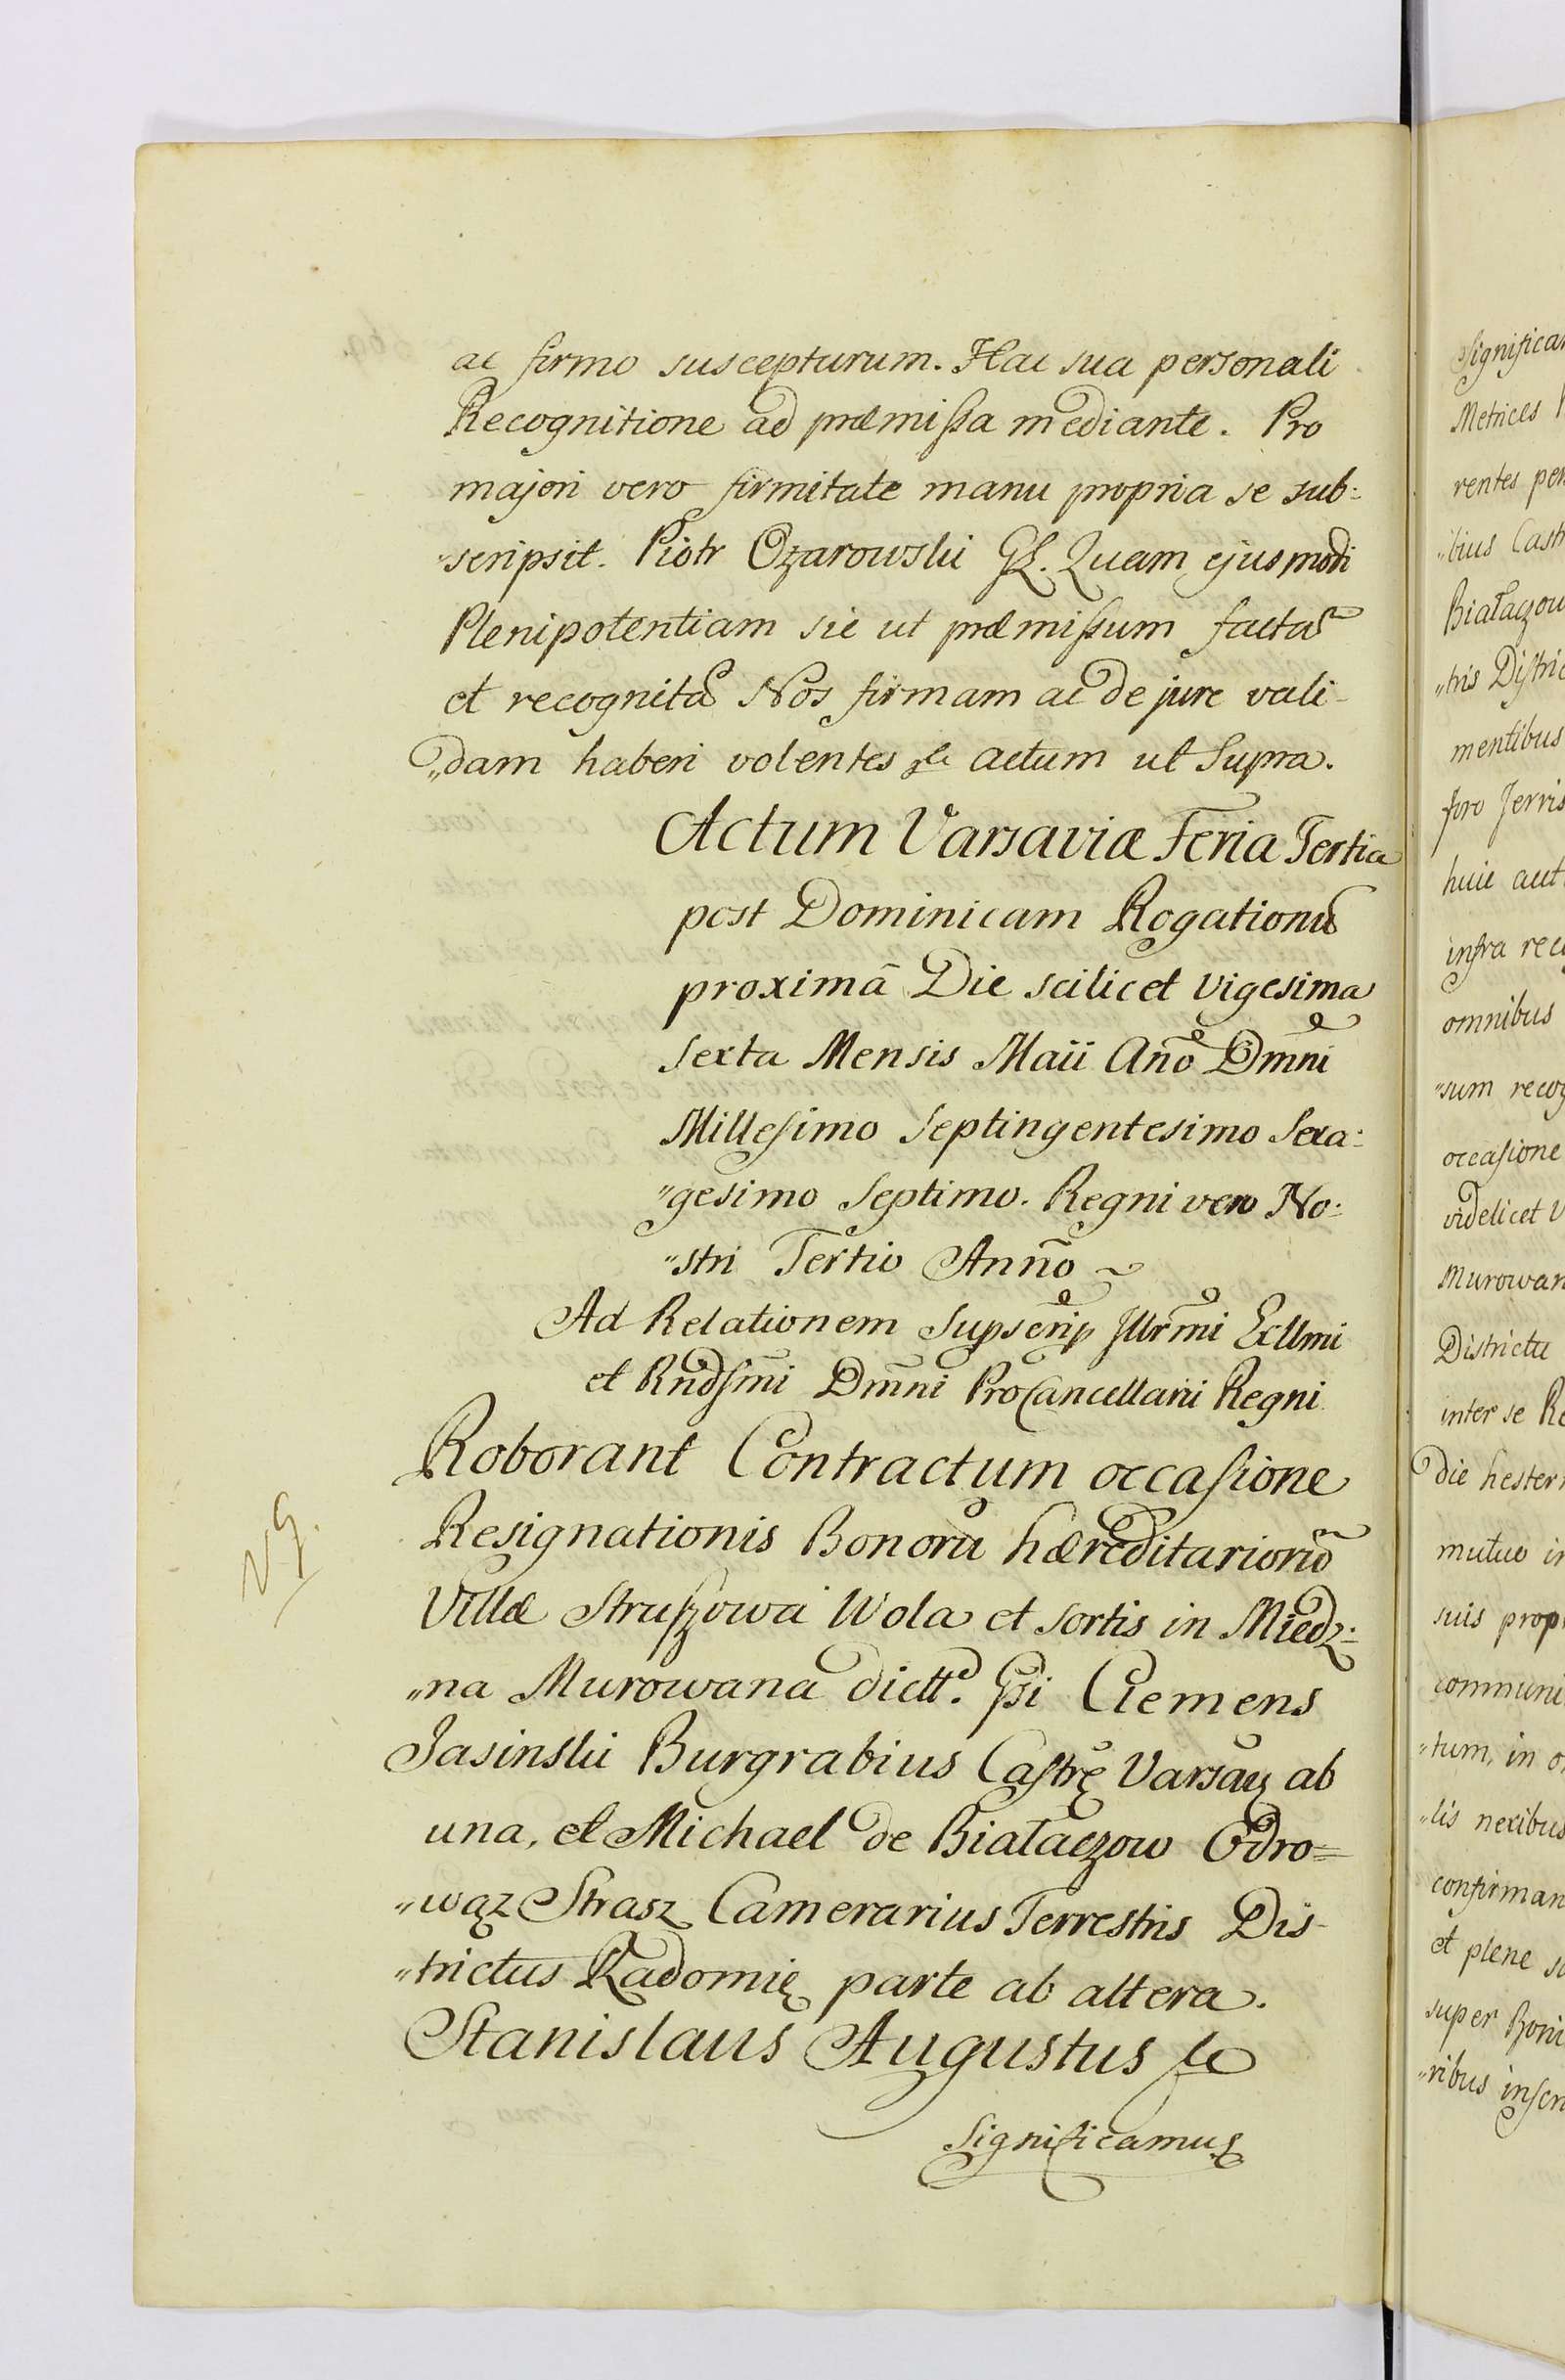 ac firmo suscepturum. Hac sua personali
Recognitione ad præmissa mediante. Pro
majori vero firmitate manu propria se sub:
"scripsit. Piotr Ożarowski GL. Quam ejusmodi
Plenipotentiam sic ut præmissum factam
et recognitã Nos firmam ac de jure vali-
"dam haberi volentes &c actum ut Supra.
Actum Varsaviæ Feria Tertia
post Dominicam Rogationũ
proximã Die scilicet Vigesima
Sexta Mensis Maii Año Dm̃ni
Millesimo Septingentesimo Sexa:
"gesimo Septimo. Regni vero No:
"stri Tertio Anño
Ad Relationem Supscrip Illr̃mi Ecllmi
et Rñdsm̃i Dm̃ni ProCancellarii Regni
Roborant Contractum occasione
Resignationis Bonorũ hæreditariorũ
Villæ Struszowa Wola et Sortis in Miedz:
"na Murowana dictt. Gsi Clemens
Jasinski Burgrabius Castrę Varsaŭ ab
una, et Michael de Białaczow Odro=
"wąż Strasz Camerarius Terrestris Dis-
"trictus Radomię parte ab altera.
Stanislaus Augustus &c
Significamus
VG.
Significam
Metrices
rentes per
"bius Castr
Białaczow
"tris Distric
mentibus
foro Terris
huic aut
infra rec
omnibus
"sum recog
occasione
videlicet V
Murowan
Districtu
inter se Re
die hestern
mutuo in
suis prop
communi
"tum, in o
"lis nexibus
confirman
et plene su
super Boni
"ribus inscri